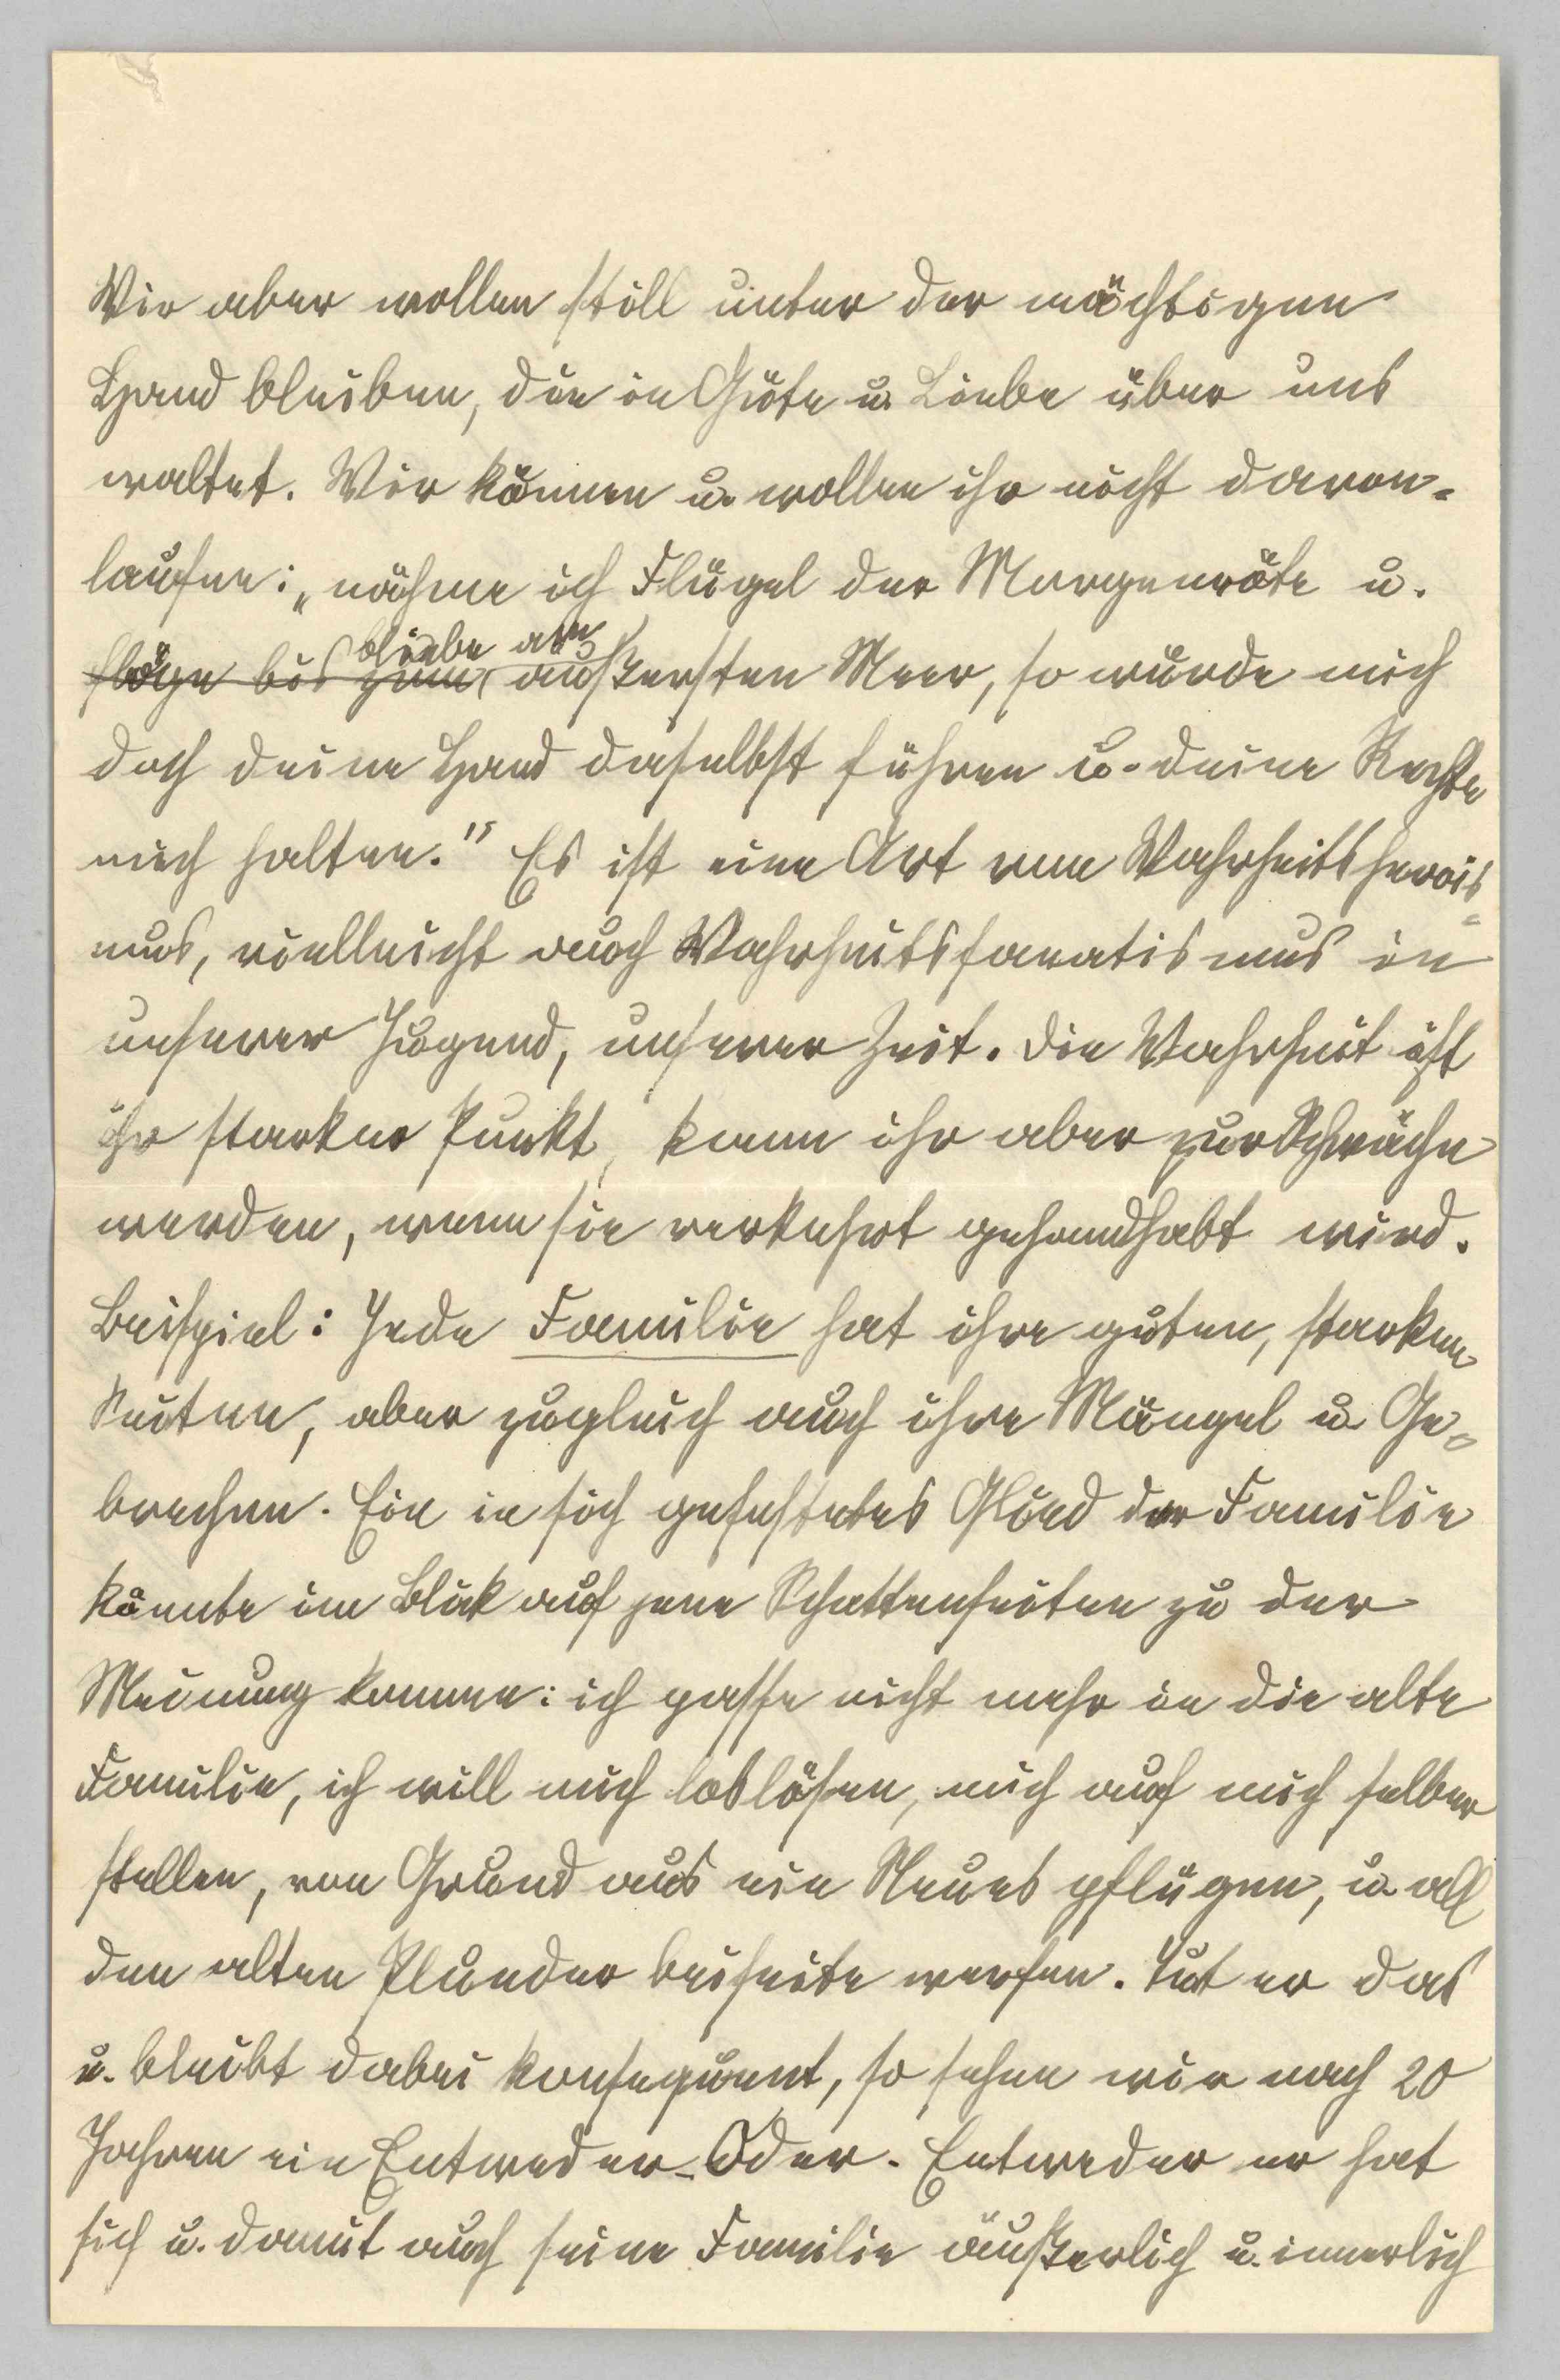 Wir aber wollen still unter der mächtigen
Hand bleiben, die in Güte u. Liebe über uns
waltet. Wir können u. wollen ihr nicht davon-
laufen: „nähme ich Flügel der Morgenröte u.
bliebe am
flöge bis zum äußersten Meer, so würde mich
doch deine Hand daselbst führen u. deine Rechte
mich halten." Es ist eine Art von Wahrheitsherois-
mus, vielleicht auch Wahrheitsfanatismus in
unserer Jugend, unserer Zeit. Die Wahrheit ist
ihr starker Punkt, kann ihr aber zur Schwäche
werden, wenn sie verkehrt gehandhabt wird.
Beispiel: Jede Familie hat ihre guten, starken
Seiten, aber zugleich auch ihre Mängel u. Ge-
brechen. Ein in sich gefestetes Glied der Familie
könnte im Blick auf jene Schattenseiten zu der
Meinung kommen: ich passe nicht mehr in die alte
Familie, ich will mich loslösen, mich auf mich selber
stellen, von Grund aus ein Neues pflügen, u. all
den alten Plunder beiseite werfen. Tut er das
u. bleibt dabei konsequent, so sehen wir nach 20
Jahren ein Entweder-Oder. Entweder er hat
sich u. damit auch seine Familie äußerlich u. innerlich